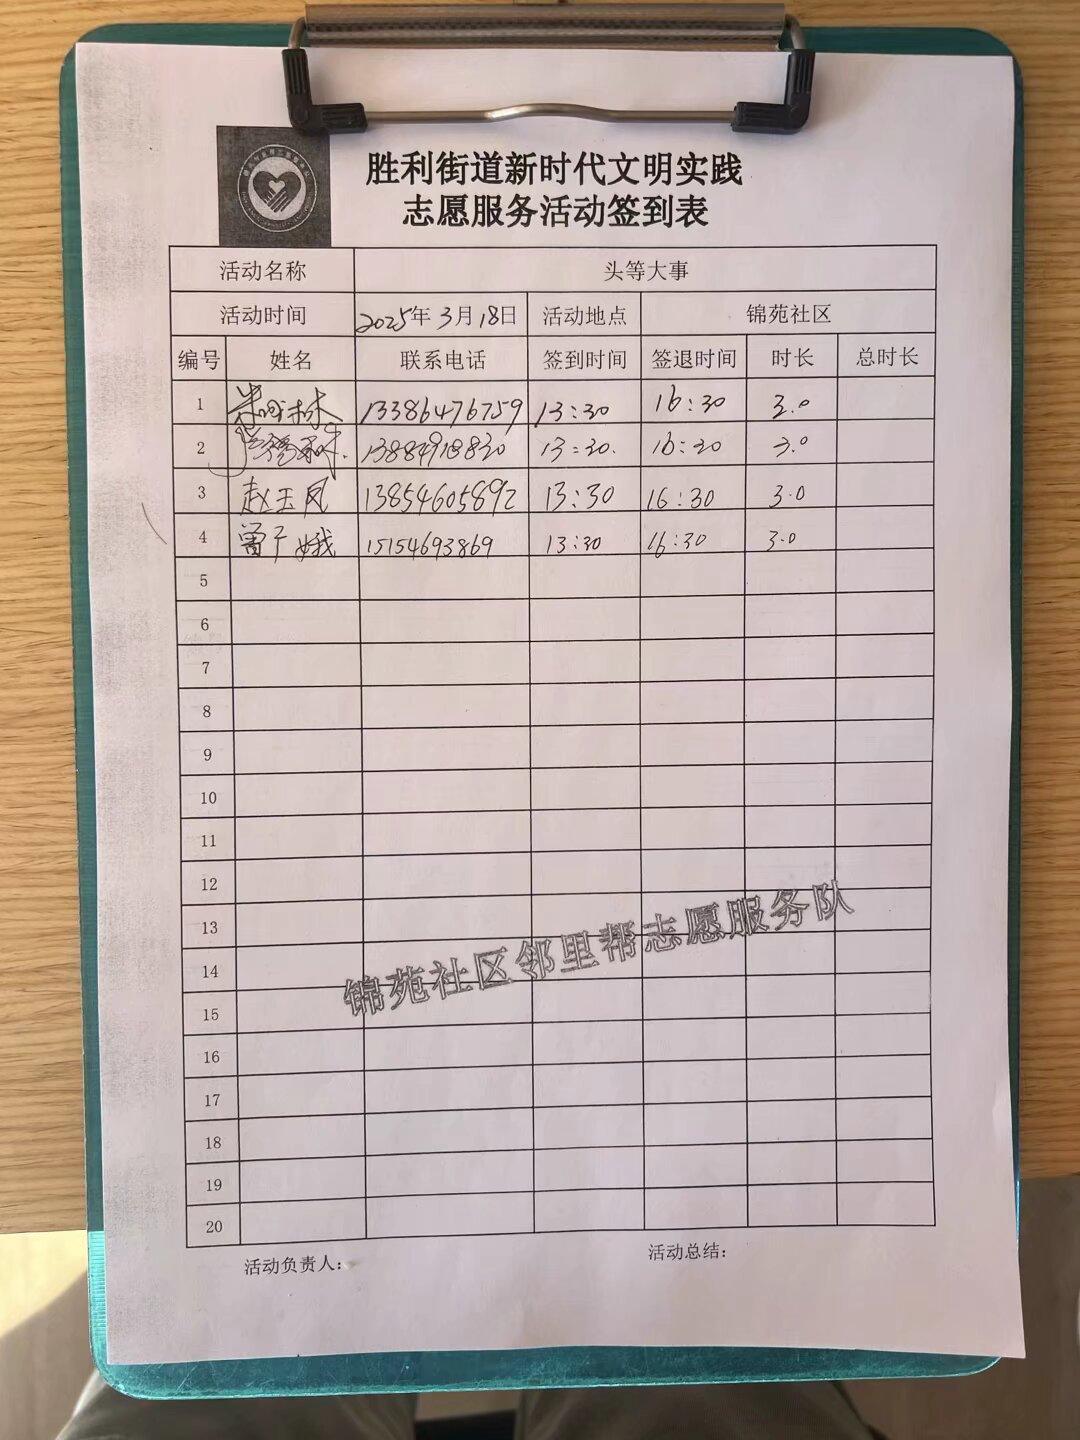 胜利街道新时代文明实践
志愿服务活动签到表
活动名称 头等大事
活动时间 2025年 3月 18日 活动地点 锦苑社区
编号 姓名 联系电话 签到时间 签退时间 时长 总时长
1 13386476759 13:30 16:30 3.0
2 13:30. 16:30 3.0
3 赵玉凤 13854605892 13:30 16:30 3.0
4 曾广娥 15154693869 13:30 16:30 3.0
5
6
7
8
9
10
11
12
13
锦苑社区邻里帮志愿服务队
14
15
16
17
18
19
20
活动负责人： 活动总结：